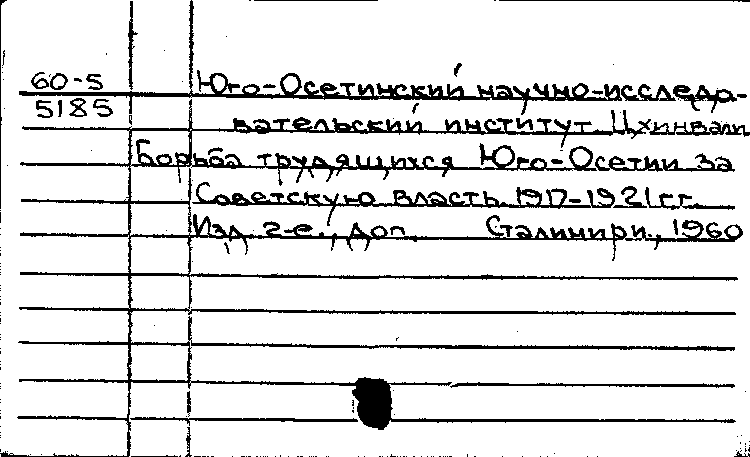 60-5 Юго-Осетинский научно-исследо-
5185 вательский институт. Цхинвали
Борьба трудящихся Юго-Осетии за
Советскую власть. 1917-1921 гг.
Изд. 2-е., доп. Сталинири., 1960